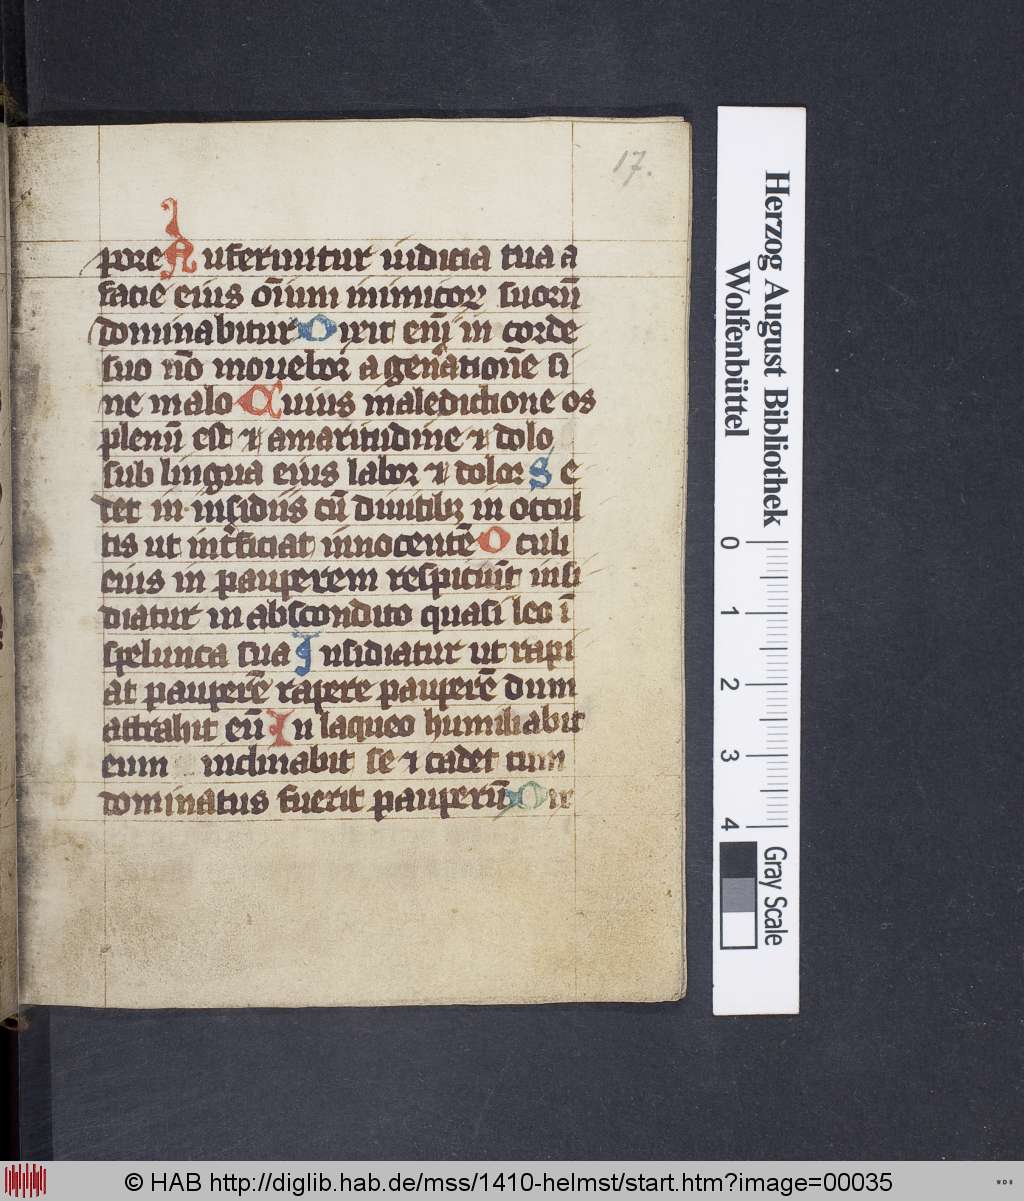 17.
pore Auferuntur iudicia tua a
facie eius om̄ium inimicoꝝ suorū
dominabitur Dixit em̄ in corde
suo nō mouebor a gen̄atione si
ne malo Cuius maledictione os
plenū est ⁊ amaritudine ⁊ dolo
sub lingua eius labor ⁊ dolor Se
det in insidiis cū diuitibꝫ in occul
tis ut int̄ficiat innocentē Oculi
eius in pauperem respiciūt insi
diatur in abscondito quasi leo ī
spelunca sua Insidiatur ut rapi
at pauperē rapere pauperē dum
attrahit eū In laqueo humiliabit
eum inclinabit se ⁊ cadet cum
dominatus fuerit pauperū Dix
Herzog August Bibliothek
Wolfenbüttel
0 1 2 3 4
Gray Scale
© HAB http://diglib.hab.de/mss/1410-helmst/start.htm?image=00035